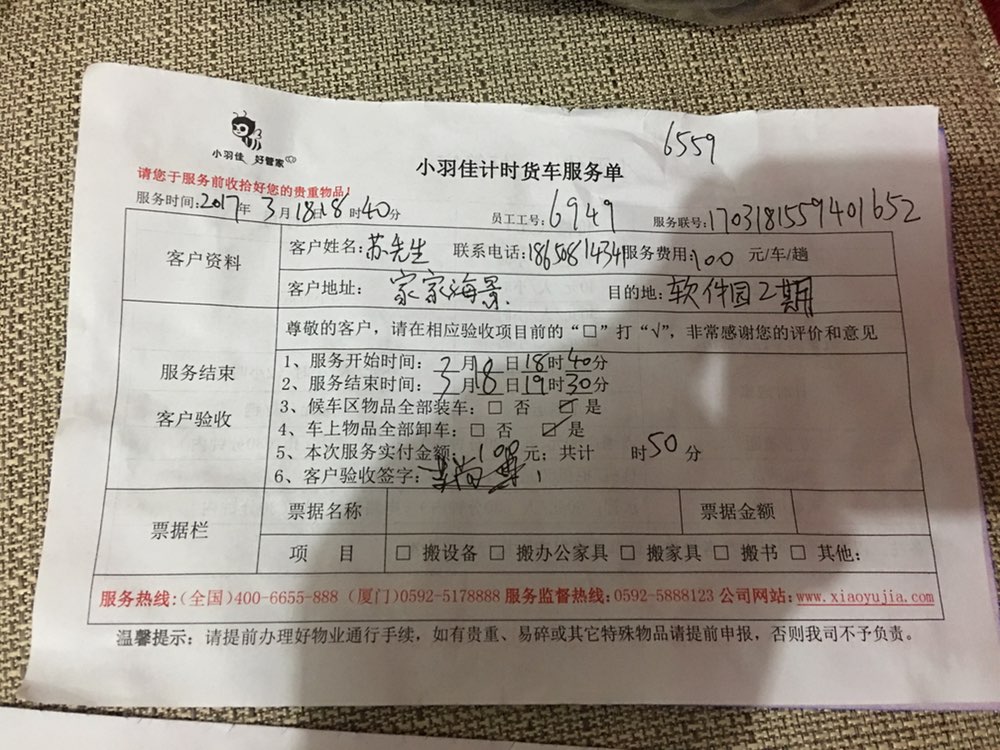 6559
小羽佳 好管家
小羽佳计时货车服务单
请您于服务前收拾好您的贵重物品!
服务时间:2017年3月18日18时40分 员工工号:6949 服务联号:1703181559401652
客户资料
客户姓名:苏先生 联系电话:18650814341服务费用:100 元/车/趟
客户地址: 家家海景. 目的地:软件园2期
服务结束
客户验收
尊敬的客户,请在相应验收项目前的“□”打“√”,非常感谢您的评价和意见
1、服务开始时间:3月18日18时40分
2、服务结束时间:3月18日19时30分
3、候车区物品全部装车:□ 否 ☑ 是
4、车上物品全部卸车:□ 否 ☑ 是
5、本次服务实付金额:100元;共计 时50分
6、客户验收签字:
票据栏
票据名称 票据金额
项 目 □ 搬设备 □ 搬办公家具 □ 搬家具 □ 搬书 □ 其他:
服务热线:(全国)400-6655-888 (厦门)0592-5178888 服务监督热线:0592-5888123 公司网站:www.xiaoyujia.com
温馨提示: 请提前办理好物业通行手续,如有贵重、易碎或其它特殊物品请提前申报,否则我司不予负责。